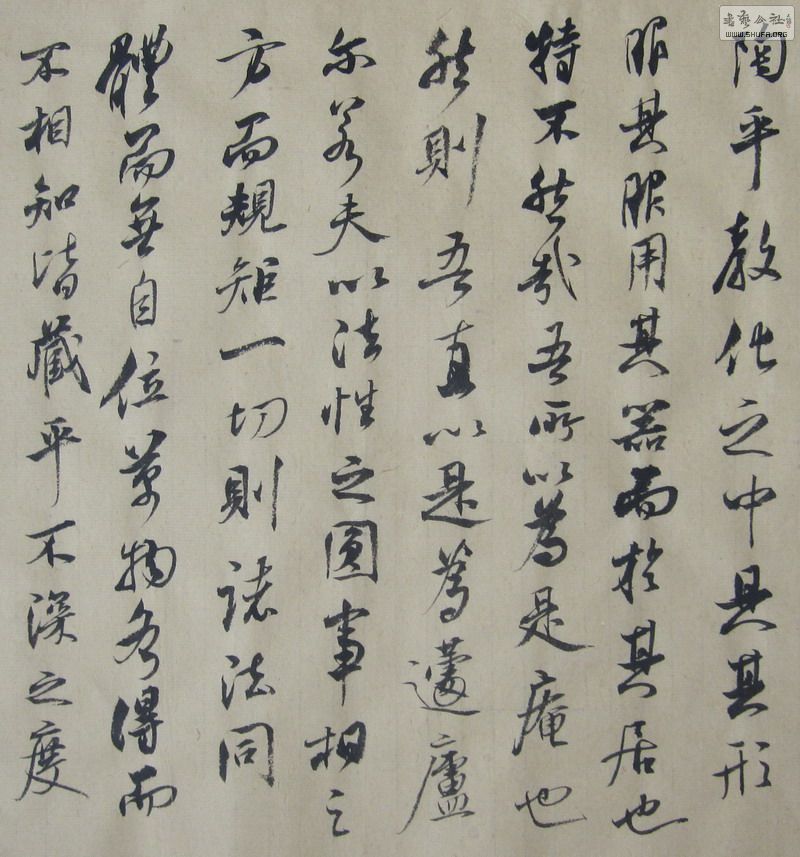 陶乎教化之中具其形
服其服用其器而於其居也
特不然哉吾所以為是庵也
然則吾直以是為蘧廬
尔若夫以法性之圓事相之
方而規矩一切則諸法同
體而無自位萬物各得而
不相知皆藏乎不深之度
書藝公社
WWW.SHUFA.ORG